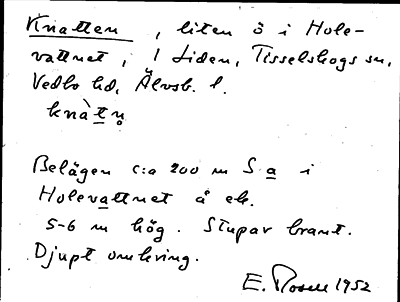 Knatten, liten ö i Hole-
vattnet, 1 Liden, Tisselskogs sn,
Vedbo hd, Älvsb. l.
knàtn̥
Belägen c:a 200 m S a i
Holevattnet å ek.
5-6 m hög. Stupar brant.
Djupt omkring.
E. Rosell 1952